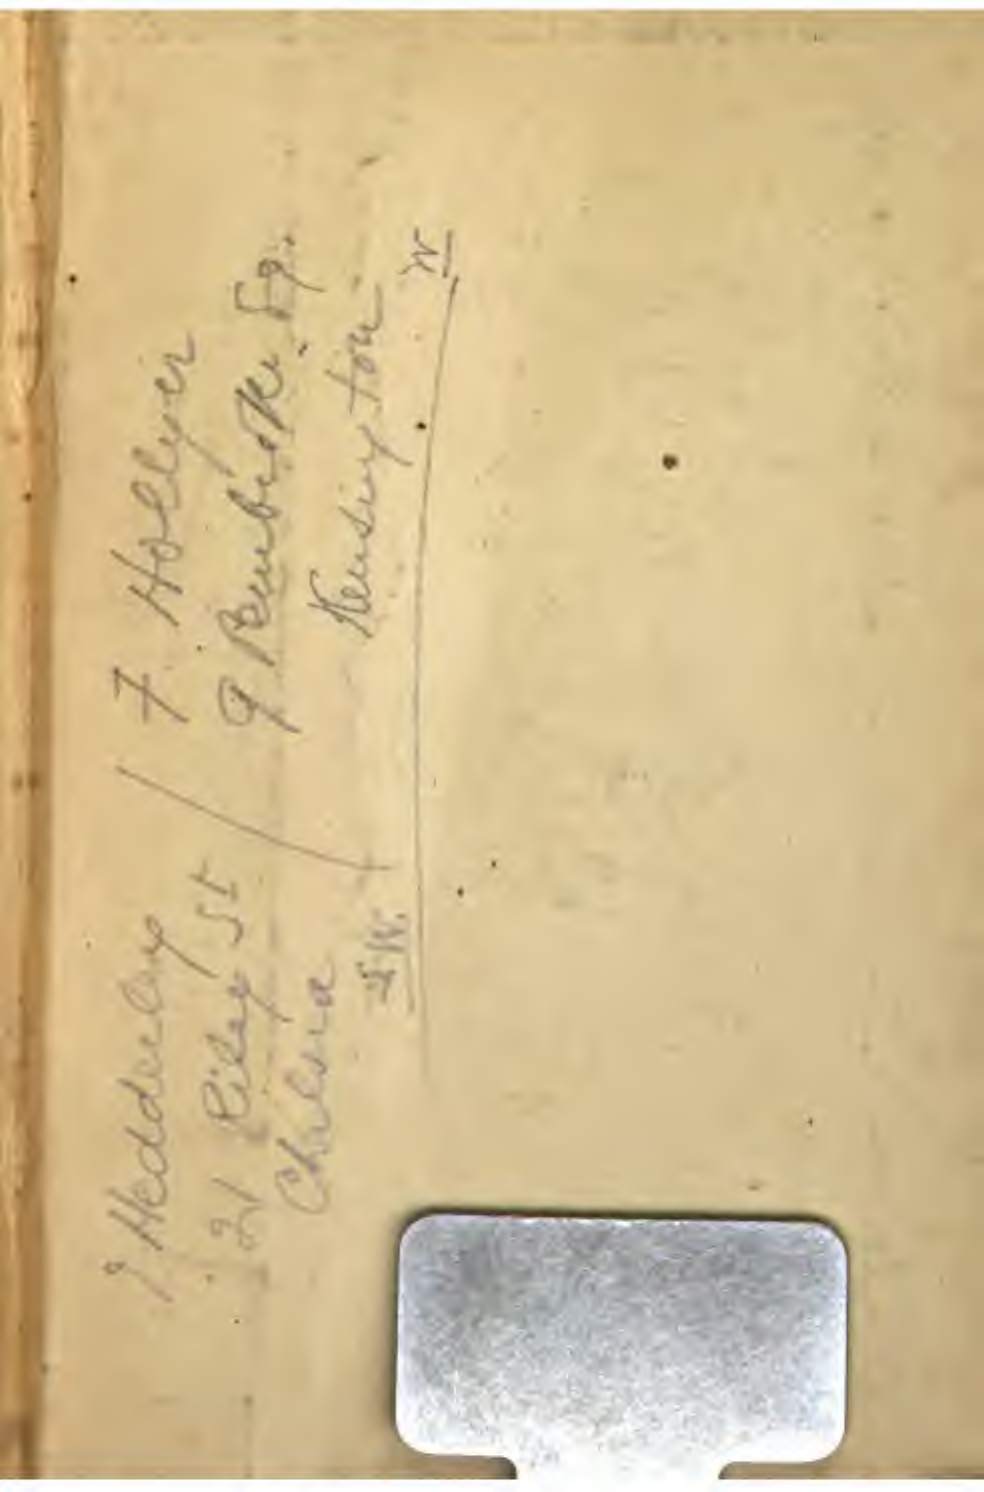 J Hedderly
21 Riley St
Chelsea
S.W.
F. Hollyer
9 Pembroke Sq.
Kensington
W